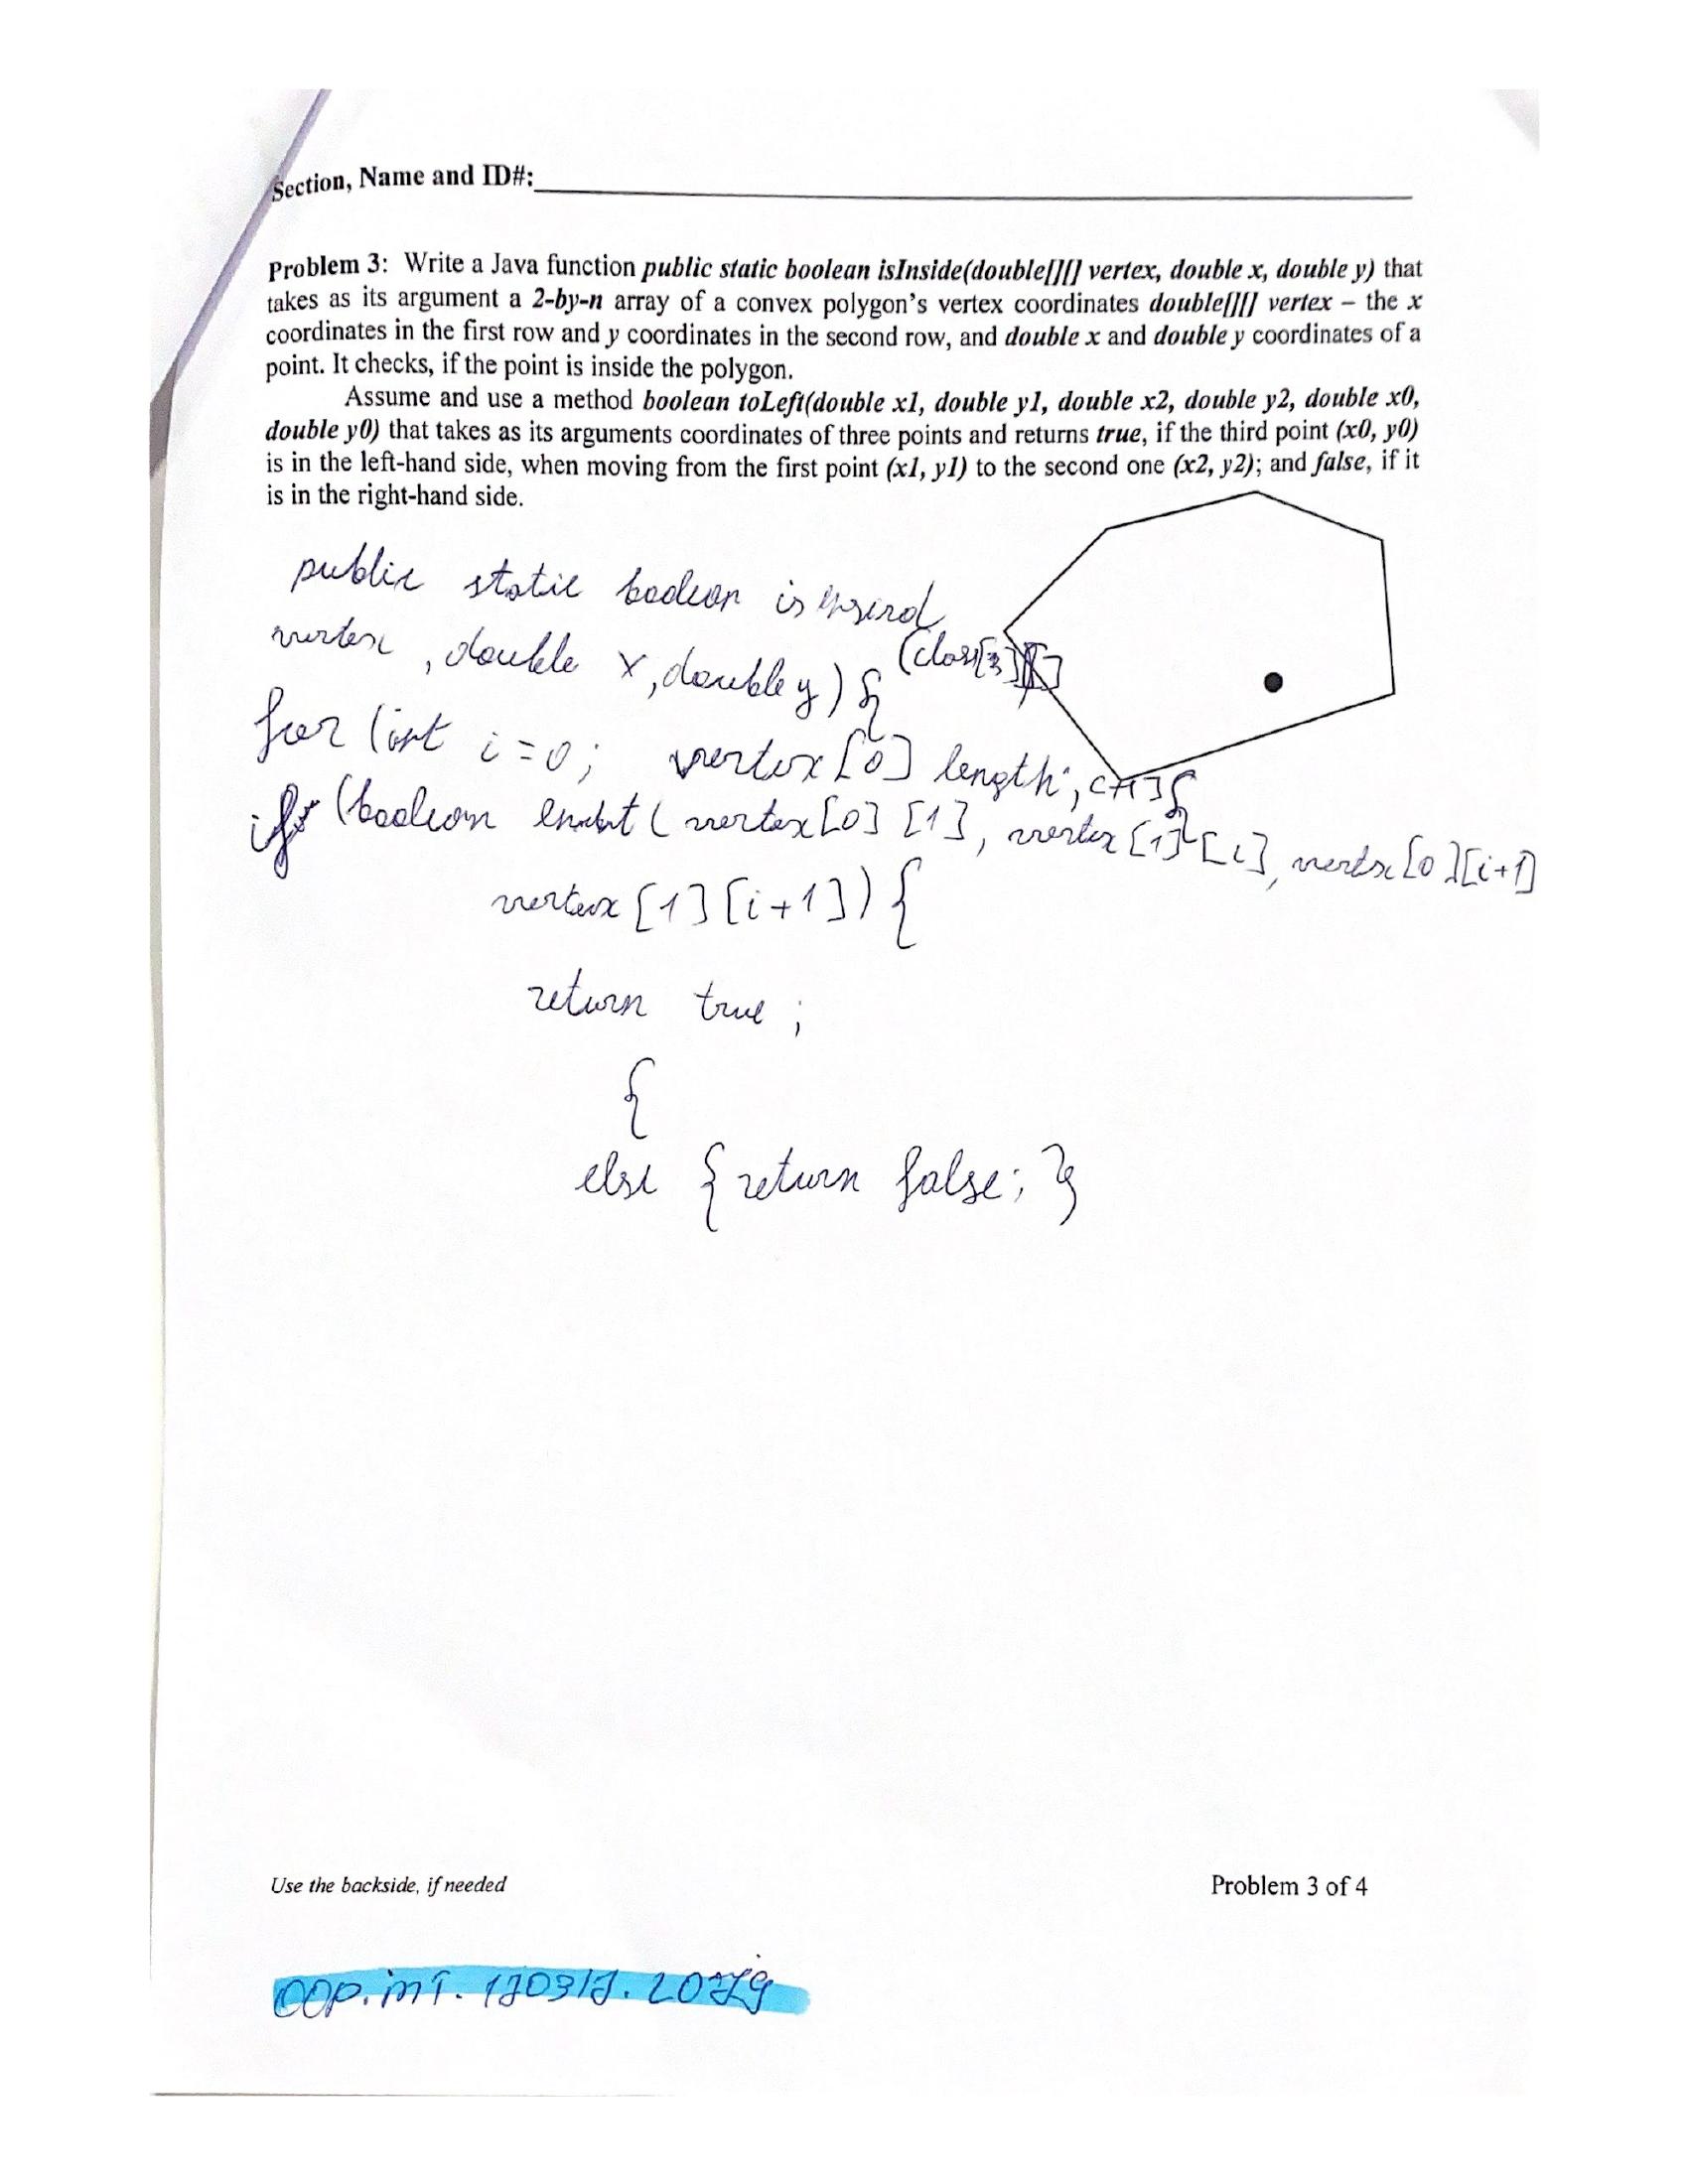 Section, Name and ID#:
Problem 3: Write a Java function public static boolean isInside(double[][] vertex, double x, double y) that
takes as its argument a 2-by-n array of a convex polygon's vertex coordinates double[][] vertex – the x
coordinates in the first row and y coordinates in the second row, and double x and double y coordinates of a
point. It checks, if the point is inside the polygon.
Assume and use a method boolean toLeft(double x1, double y1, double x2, double y2, double x0,
double y0) that takes as its arguments coordinates of three points and returns true, if the third point (x0, y0)
is in the left-hand side, when moving from the first point (x1, y1) to the second one (x2, y2); and false, if it
is in the right-hand side.
public static boolean is
vertex , double x, double y) {
for (int i = 0; vertex [0] length;
if (boolean ( vertex [0] [1], vertex [1] [i], vertex [0] [i+1]
vertex [1] [i+1]) {
return true ;
{
else { return false; }
Use the backside, if needed
Problem 3 of 4
OOP. MT.